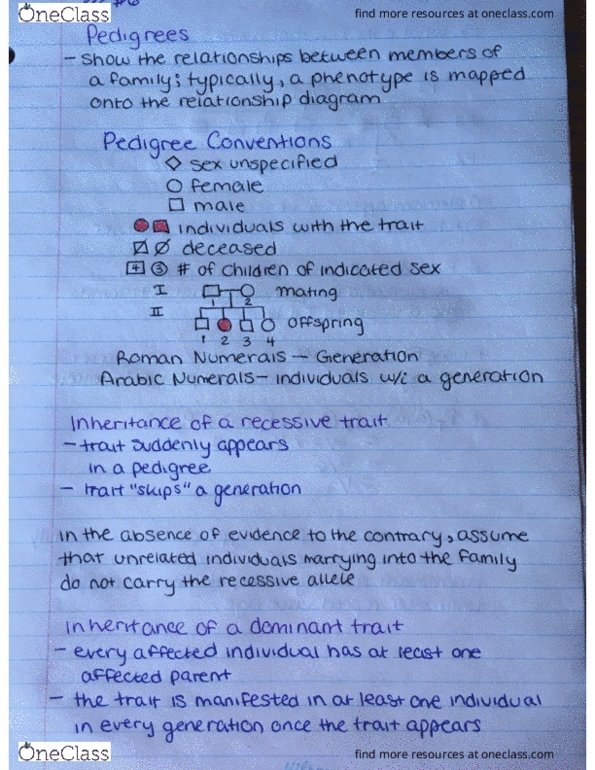 #6
OneClass
find more resources at oneclass.com
Pedigrees
- Show the relationships between members of
a family; typically, a phenotype is mapped
onto the relationship diagram
Pedigree Conventions
◇ sex unspecified
○ female
□ male
individuals with the trait
deceased
4 3 # of children of indicated sex
I mating
1 2
II offspring
1 2 3 4
Roman Numerals - Generation
Arabic Numerals - individuals w/i a generation
Inheritance of a recessive trait
- trait suddenly appears
in a pedigree
- trait "skips" a generation
in the absence of evidence to the contrary, assume
that unrelated individuals marrying into the family
do not carry the recessive allele
inheritance of a dominant trait
- every affected individual has at least one
affected parent
- the trait is manifested in at least one individual
in every generation once the trait appears
OneClass
find more resources at oneclass.com